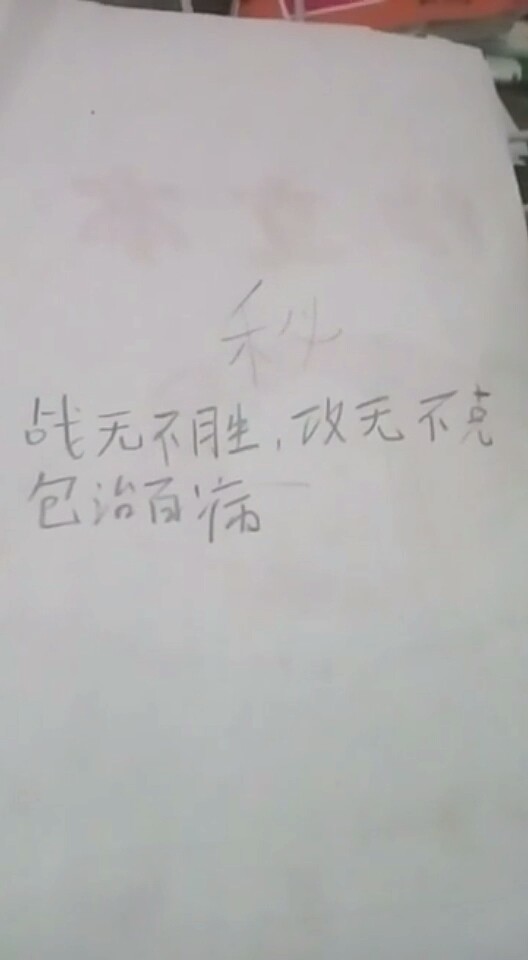 秘
战无不胜，攻无不克
包治百病